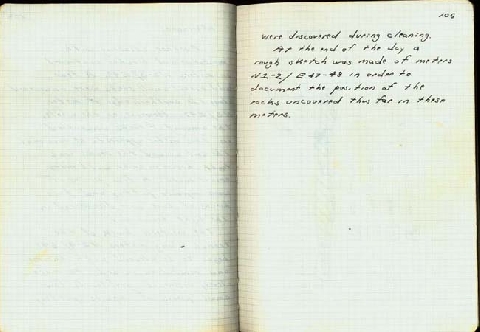 105
were discovered during cleaning.
At the end of the day a
rough sketch was made of meters
N1-2/E47-48 in order to
document the position of the
rocks uncovered thus far in these
meters.